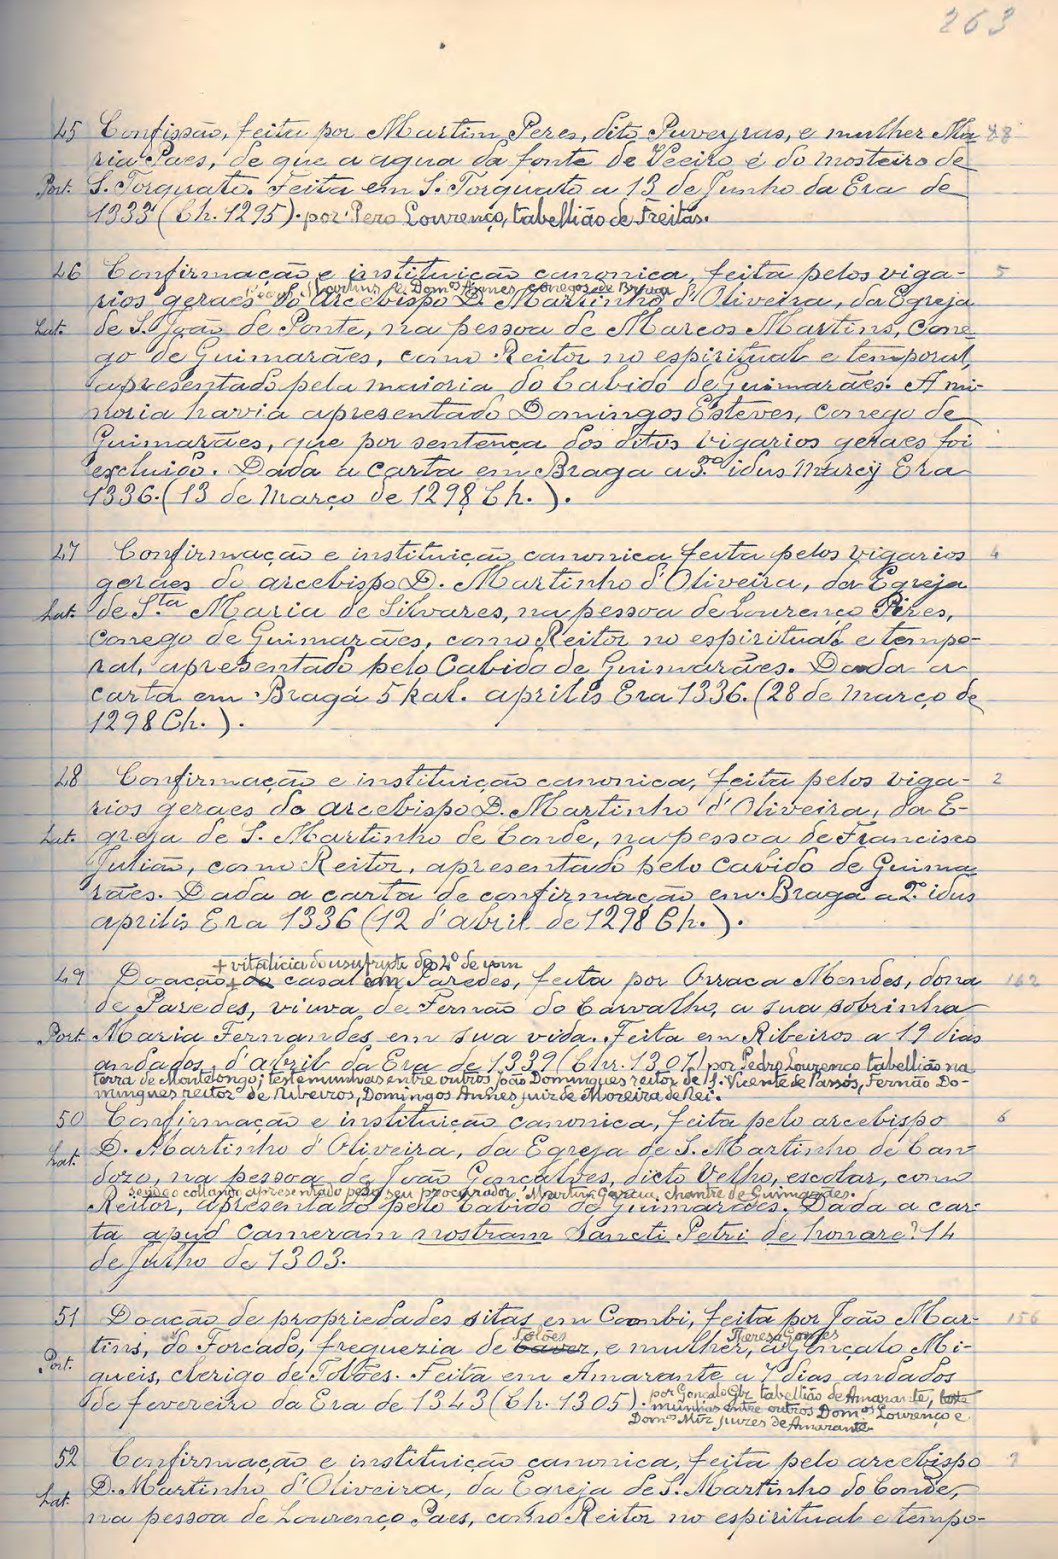 263
45 Confissão, feita por Martim Peres, dito Puveyras, e mulher Ma- 88
ria Paes, de que a agua da fonte de Veeiro é do mosteiro de
Port. S. Torquato. Feita em S. Torquato a 13 de Junho da Era de
1333 (Ch. 1295). por Pero Lourenço, tabellião de Freitas.
46 Confirmação e instituição canonica, feita pelos viga- 5
Martins e Domos Annes conegos de Braga
rios geraes do Arcebispo D. Martinho d'Oliveira, da Egreja
Lat. de S. João de Ponte, na pessoa de Marcos Martins, cone-
go de Guimarães, como Reitor no espiritual e temporal,
apresentado pela maioria do Cabido de Guimarães. A mi-
noria havia apresentado Domingos Esteves, conego de
Guimarães, que por sentença dos ditos vigarios geraes foi
excluido. Dada a carta em Braga a 3º idus Marcij Era
1336. (13 de Março de 1298 Ch.).
47 Confirmação e instituição canonica feita pelos vigarios 4
geraes do arcebispo D. Martinho d'Oliveira, da Egreja
Lat. de Sta Maria de Silvares, na pessoa de Lourenço Pires,
conego de Guimarães, como Reitor no espiritual e tempo-
ral, apresentado pelo Cabido de Guimarães. Dada a
carta em Braga 5 kal. aprilis Era 1336. (28 de Março de
1298 Ch.).
48 Confirmação e instituição canonica, feita pelos viga- 2
rios geraes do arcebispo D. Martinho d'Oliveira, da E-
Lat. greja de S. Martinho de Conde, na pessoa de Francisco
Julião, como Reitor, apresentado pelo cabido de Guima-
rães. Dada a carta de confirmação em Braga a 2º idus
aprilis Era 1336 (12 d'abril de 1298 Ch.).
+ vitalicia do usufructo do 4º de um
49 Doação + de casal em Paredes, feita por Orraca Mendes, dona 162
de Paredes, viuva de Fernão do Carvalho, a sua sobrinha
Port. Maria Fernandes em sua vida. Feita em Ribeiros a 19 dias
andados d'Abril da Era de 1339 (Chr. 1301) por Pedro Lourenço tabellião na
terra de Montelongo; testemunhas entre outros João Domingues reitor de S. Vicente de Passos, Fernão Do-
mingues reitor de Ribeiros, Domingos Annes juiz de Moreira de Rei.
50 Confirmação e instituição canonica, feita pelo arcebispo 6
Lat. D. Martinho d'Oliveira, da Egreja de S. Martinho de Can-
dozo, na pessoa de João Gonçalves, dicto Velho, escolar, como
sendo o collando apresentado pelo seu procurador, Martim Garcia, chantre de Guimarães.
Reitor, apresentado pelo Cabido de Guimarães. Dada a car-
ta apud Cameram nostram Sancti Petri de honare? 14
de Julho de 1303.
51 Doação de propriedades sitas em Coombi, feita por João Mar- 156
Tolões Thereza Gomes
Port. tins, do Forcado, freguezia de Cavez, e mulher, a Gonçalo Mi-
gueis, clerigo de Tolões. Feita em Amarante a 7 dias andados
de fevereiro da Era de 1343 (Ch. 1305). por Gonçalo Glz tabellião de Amarante, teste-
munhas entre outros Domos Lourenço e
Domos Miz juizes de Amarante
52 Confirmação e instituição canonica, feita pelo arcebispo 9
Lat. D. Martinho d'Oliveira, da Egreja de S. Martinho do Conde,
na pessoa de Lourenço Paes, como Reitor no espiritual e tempo-